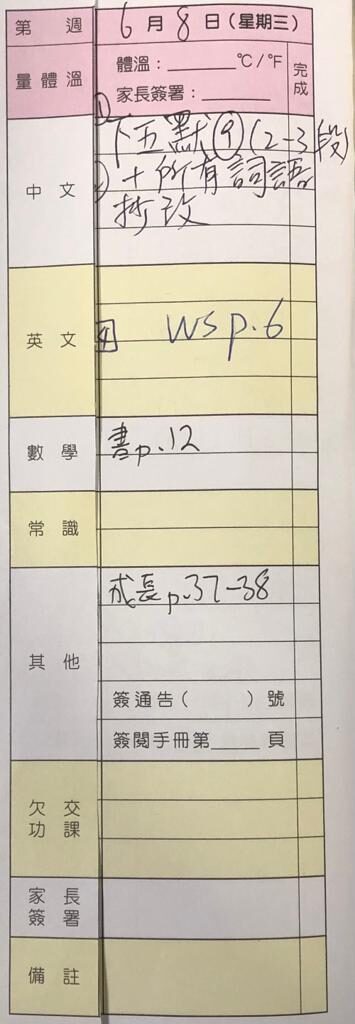 第 週 6 月 8 日 (星期三)
量體溫 體溫：______ °C/°F 完成
家長簽署：______
中文 ① 下五默⑨(2-3段)
② + 所有詞語
抄改
英文 4 WS p.6
數學 書p.12
常識
其他 成長p.37-38
簽通告( )號
簽閱手冊第____頁
欠交功課
家長簽署
備註